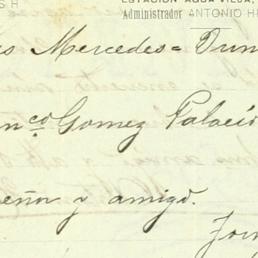 ESTACIÓN AGUA VIEJA,
Administrador ANTONIO H
Mercedes = Dur
nco Gomez Palacio
eñor y amigo.